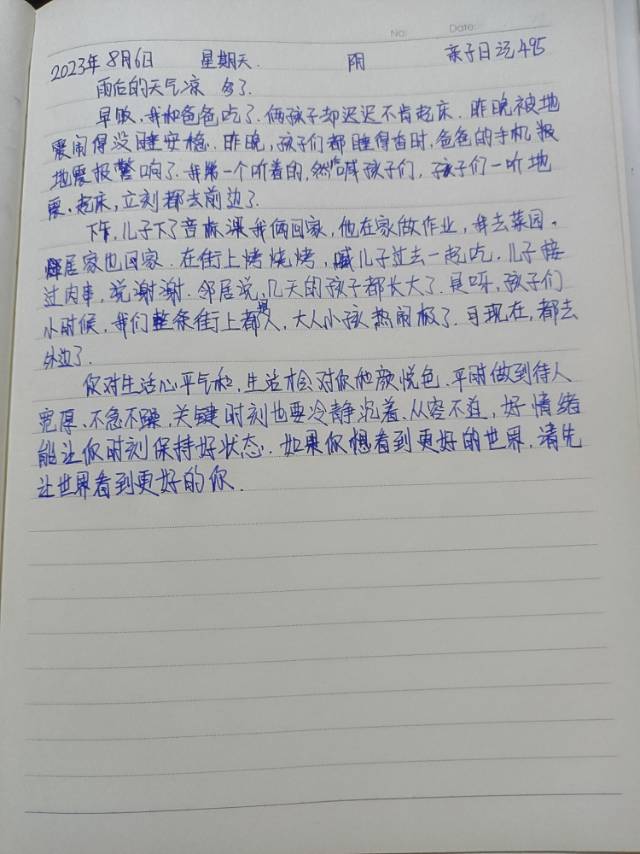 No:
Date:
2023年8月6日 星期天. 阴 亲子日记495
雨后的天气凉 多了.
早饭,我和爸爸吃了.俩孩子却迟迟不肯起床.昨晚被地
震闹得没睡安稳.昨晚,孩子们都睡得香时,爸爸的手机报
地震报警响了.我第一个听着的,然后喊孩子们,孩子们一听地
震,起床,立刻都去前边了.
下午,儿子下了音标课我俩回家,他在家做作业,我去菜园.
邻居家也回家.在街上烤烧烤,喊儿子过去一起吃.儿子接
过肉串,说谢谢.邻居说,几天的孩子都长大了.真呀,孩子们
小时候,我们整条街上都是人,大人小孩热闹极了.可现在,都去
外边了.
你对生活心平气和,生活相对你和颜悦色.平时做到待人
宽厚,不急不躁,关键时刻也要冷静沉着,从容不迫,好情绪
能让你时刻保持好状态.如果你想看到更好的世界,请先
让世界看到更好的你.